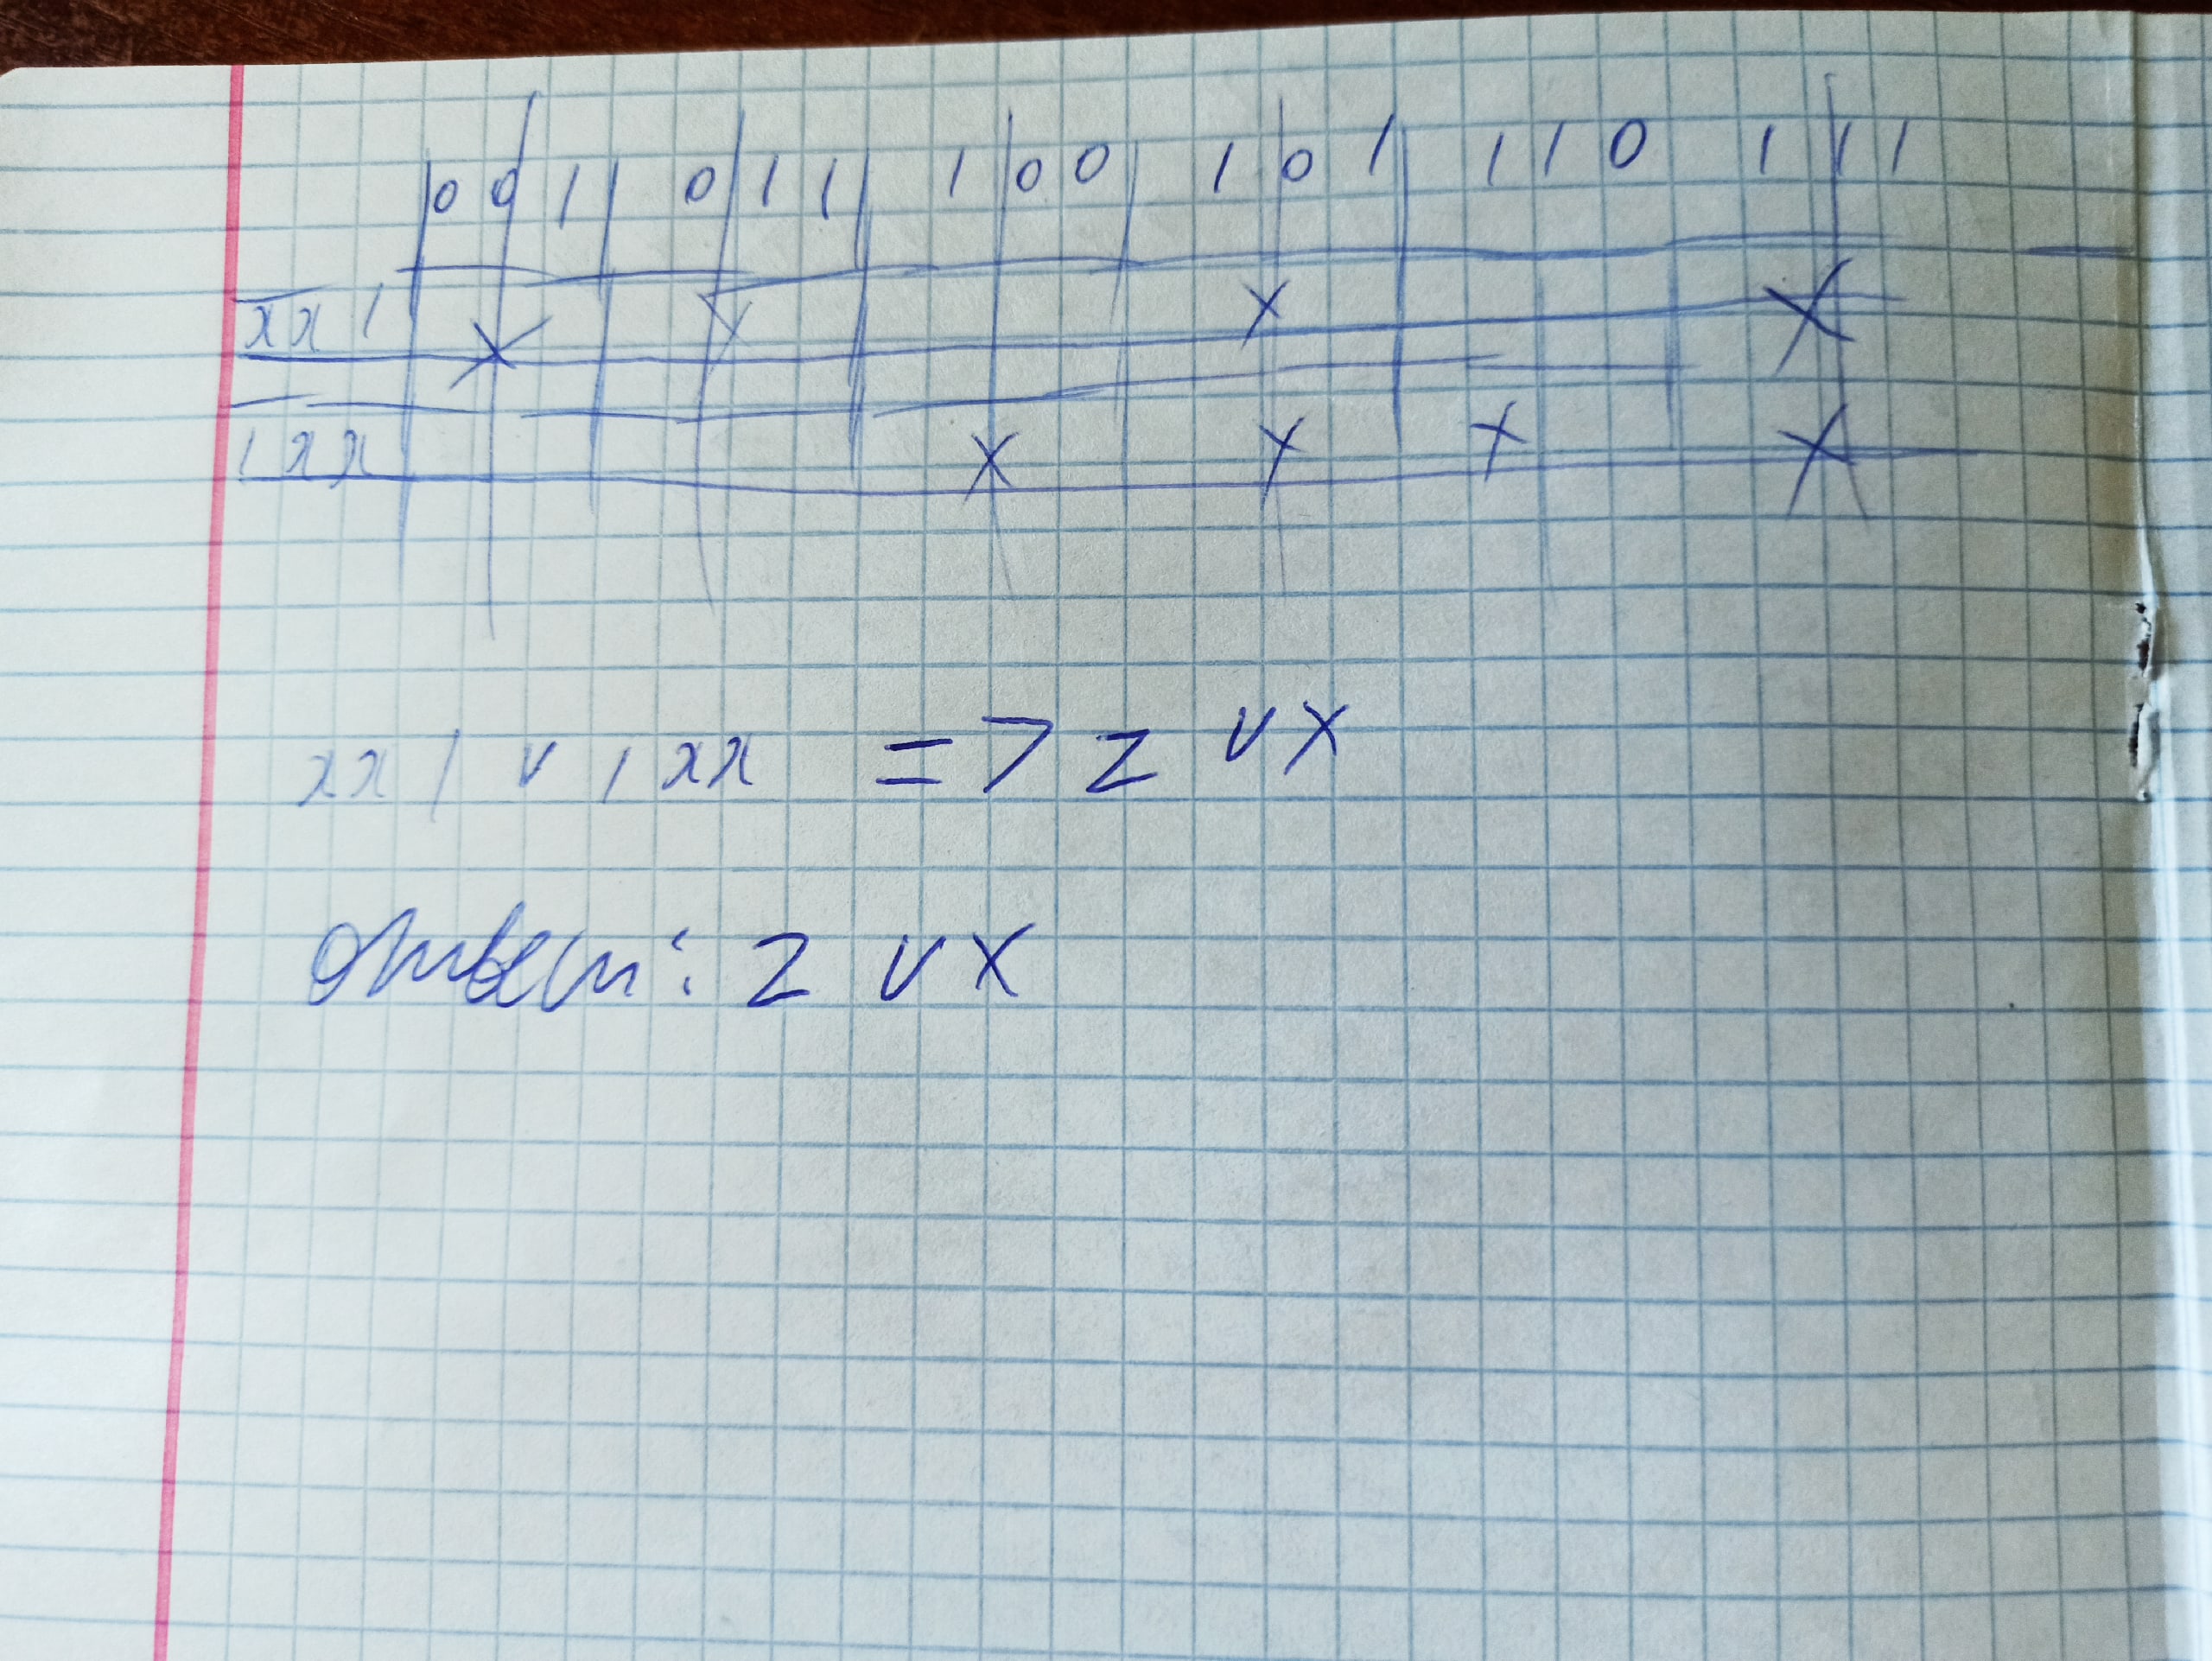 001 011 100 101 110 111
xx1 X X X X
1xx X X X X
xx1 v 1xx => z v x
ответ: z v x